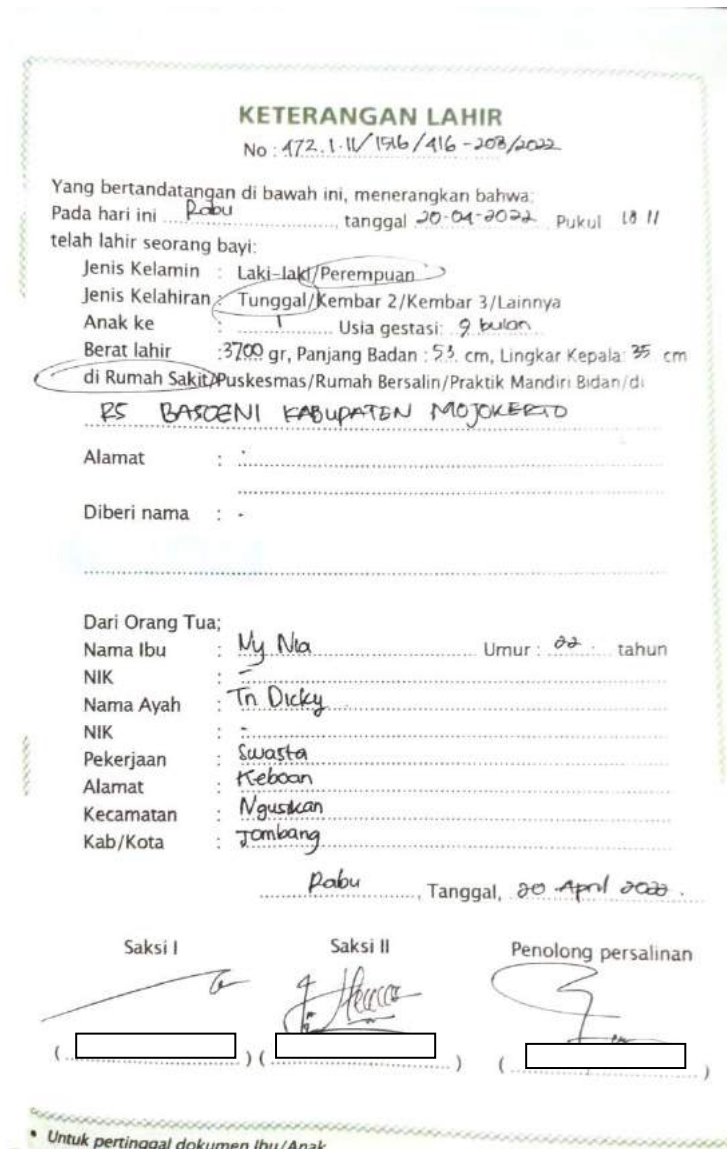 KETERANGAN LAHIR
No : 472.1.11/1516/416-208/2022
Yang bertandatangan di bawah ini, menerangkan bahwa;
Pada hari ini Rabu, tanggal 20-04-2022 Pukul 18 11
telah lahir seorang bayi:
Jenis Kelamin : Laki-laki/Perempuan
Jenis Kelahiran : Tunggal/Kembar 2/Kembar 3/Lainnya
Anak ke : 1 Usia gestasi: 9 bulan
Berat lahir :3700 gr, Panjang Badan : 53 cm, Lingkar Kepala: 35 cm
di Rumah Sakit/Puskesmas/Rumah Bersalin/Praktik Mandiri Bidan/di
RS BASOENI KABUPATEN MOJOKERTO
Alamat : -
Diberi nama : -
Dari Orang Tua;
Nama Ibu : Ny Nia Umur : 22 tahun
NIK : -
Nama Ayah : Tn Dicky
NIK : -
Pekerjaan : Swasta
Alamat : Keboan
Kecamatan : Ngusikan
Kab/Kota : Jombang
Rabu, Tanggal, 20 April 2022.
Saksi I Saksi II Penolong persalinan
( ) ( ) ( )
• Untuk pertinggal dokumen Ibu/Anak